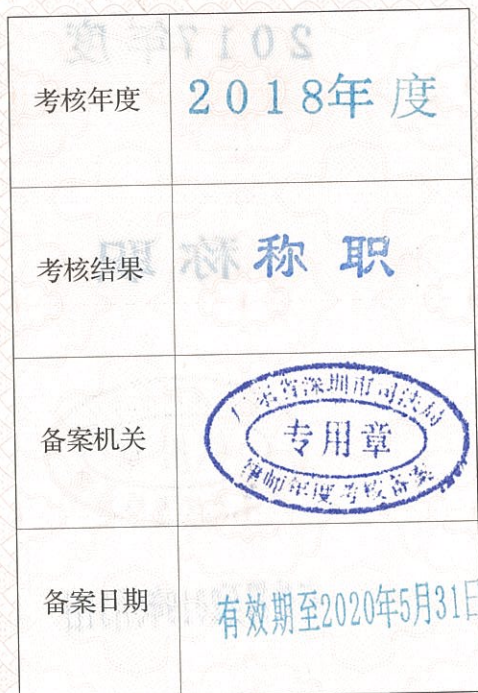 考核年度
2018年度
考核结果
称职
备案机关
广东省深圳市司法局
专用章
律师年度考核备案
备案日期
有效期至2020年5月31日